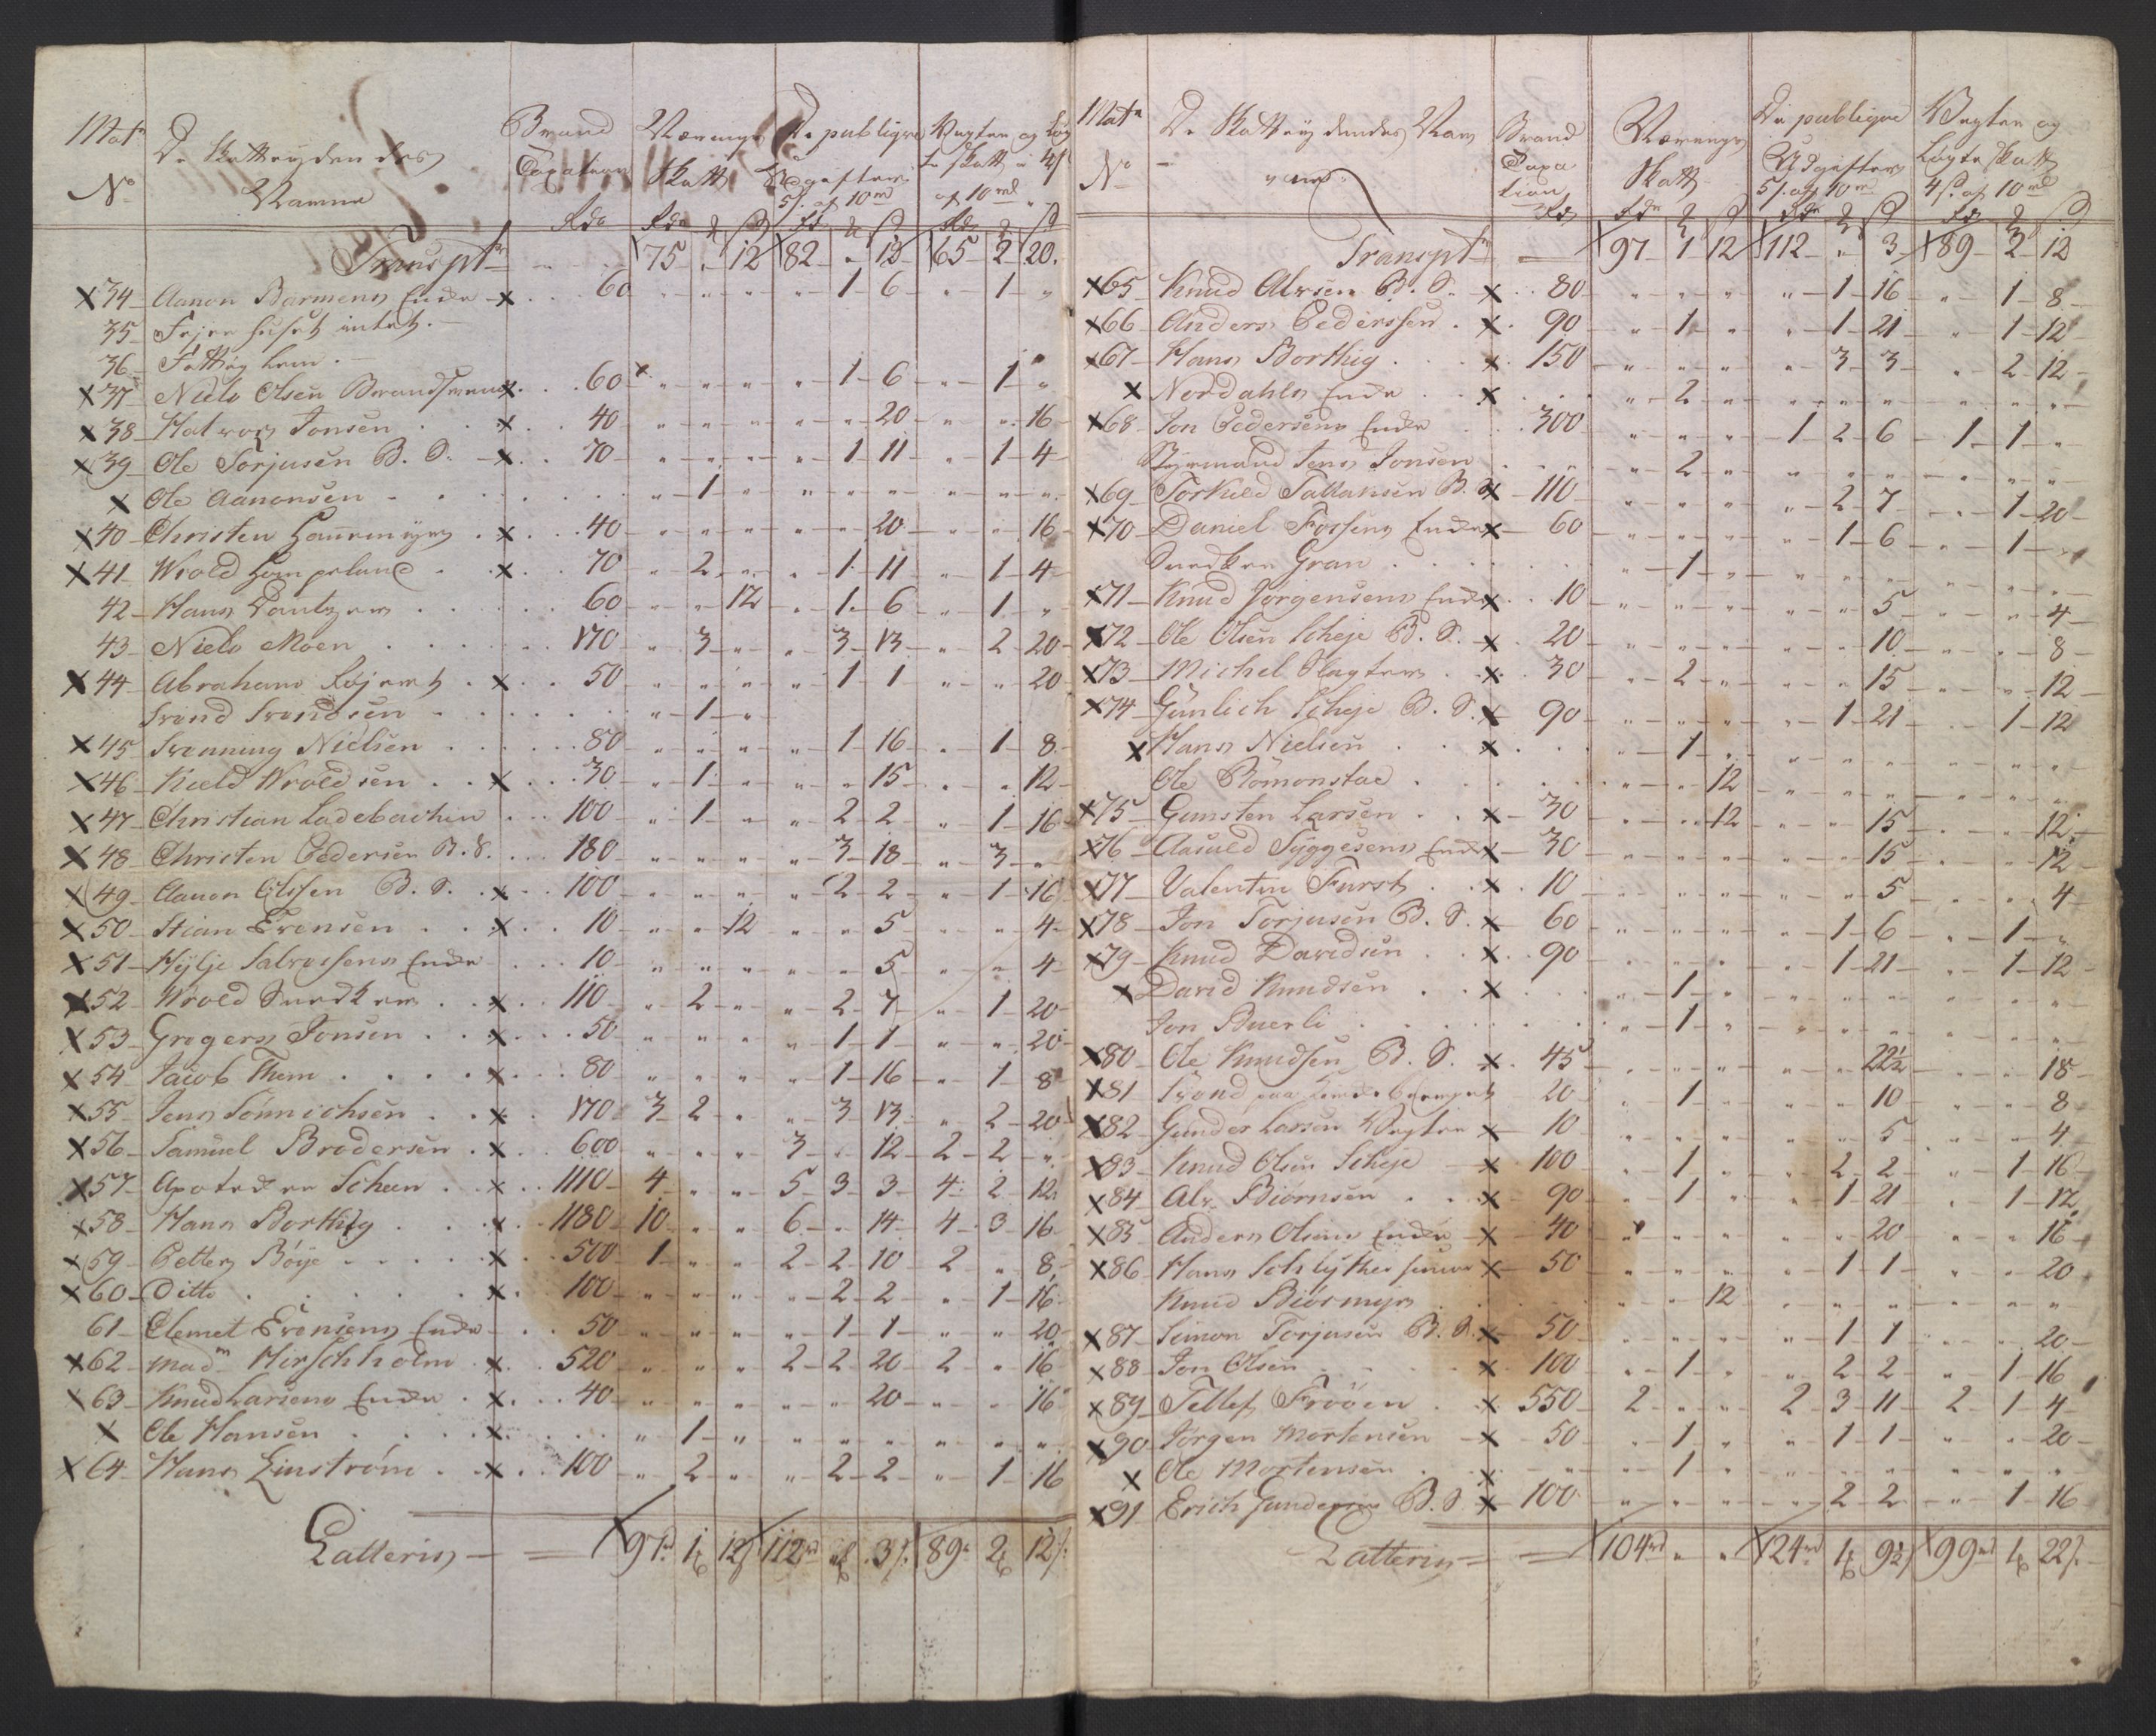 Mat. No | De Skattÿdendes Navne | Brand Taxation Rdr | Nærings Skatt Rdr | De publiqve Udgifter 5 s. af 10 rd | Vægter og Løgte Skatt 4 s. af 10 rd
Transpt | 75 " 12 | 82 " 12 | 65 2 20.
x 34 Aanon Barmens Enke x 60 | " " " | " 1 6 | " 1 "
35 Fejer huset intet.
36 Fattig huus.
x 37 Niels Olsen Brandsvend x 60 | " " " | " 1 6 | " 1 "
x 38 Halvor Jonsen x 40 | " " " | " " 20 | " " 16
x 39 Ole Torjusen B. S. x 70 | " " " | " 1 11 | " 1 4
x Ole Aanonsen | " 1 " | " " " | " " "
x 40 Christen x 40 | " " " | " " 20 | " " 16
x 41 Wrold Hompeland x 70 | " 2 " | " 1 11 | " 1 4
42 Hans Pantzer 60 | " " 12 | " 1 6 | " 1 "
43 Niels Moen 170 | " 3 " | " 3 13 | " 2 20
x 44 Abraham x 50 | " " " | " 1 1 | " " 20
Trond Trondsen | " 1 "
x 45 Tronning Nielsen 80 | " " " | " 1 16 | " 1 8
x 46 Kield Wroldsen x 30 | " 1 " | " " 15 | " " 12
x 47 Christian Ladebachen 100 | " 1 " | " 2 2 | " 1 16
x 48 Christen Pedersen B. S. 180 | " " " | " 3 18 | " 3 "
x 49 Aanon Olssen B. S. x 100 | " " " | " 2 2 | " 1 16
x 50 Stian Evensen x 10 | " " 12 | " " 5 | " " 4
x 51 Hÿlje Salvessens Enke 10 | " " " | " " 5 | " " 4
x 52 Wrold Snedker x 110 | " 2 " | " 2 7 | " 1 20
x 53 Gregers Jonsen x 50 | " " " | " 1 1 | " " 20
x 54 Jacob Them x 80 | " " " | " 1 16 | " 1 8
x 55 Jens Sönnichsen x 170 | 3 2 " | " 3 13 | " 2 20
x 56 Samuel Brodersen x 600 | " " " | 3 " 12 | 2 2 "
x 57 Apoteker Scheen x 1110 | 4 " " | 5 3 3 | 4 2 12
x 58 Hans Borthig x 1180 | 10 " " | 6 " 14 | 4 3 16
x 59 Petter Böÿe x 500 | 1 " " | 2 2 10 | 2 " 8
x 60 Ditto x 100 | " " " | " 2 2 | " 1 16
61 Clemet Evensens Enke 50 | " " " | " 1 1 | " " 20
x 62 Madm Hirschholm x 520 | " " " | 2 2 20 | 2 " 16
x 63 Knud Larsens Enke x 40 | " " " | " " 20 | " " 16
x Ole Hansen x | " 1 " | " " " | " " "
x 64 Hans Linström x 100 | " 2 " | " 2 2 | " 1 16
Latteris = 97 rd 1 12 s | 112 rd " 3 s. | 89 2 12 s.
Mat. No | De Skattÿdendes Navne | Brand Taxation Rd | Nærings Skatt Rdr | De publiqve Udgifter 5 s. af 10 rd Rdr | Vægter og Løgte Skatt 4 s. af 10 rd
Transpt | 97 1 12 | 112 " 3 | 89 2 12
x 65 Knud Alvsen B. S. x 80 | " " " | " 1 16 | " 1 8
x 66 Anders Pederssen x 90 | " 1 " | " 1 21 | " 1 12
x 67 Hans Borthig x 150 | " " " | " 3 3 | " 2 12
x Nordahls Enke x | " 2 " | " " " | " " "
x 68 Jon Pedersens Enke 300 | " " " | 1 2 6 | 1 1 "
Styrmand Jens Jonsen | " 2 " | " " " | " " "
x 69 Torkild Tallaksen B. S. x 110 | " " " | " 2 7 | " 1 20
x 70 Daniel Fossens Enke x 60 | " " " | " 1 6 | " 1 "
Snedker Gran | " 1 " | " " " | " " "
x 71 Knud Jorgensens Enke x 10 | " " " | " " 5 | " " 4
x 72 Ole Olsen Scheje B. S. x 20 | " " " | " " 10 | " " 8
x 73 Michel Slagter x 30 | " 2 " | " " 15 | " " 12
x 74 Gunlech Scheje B. S. x 90 | " " " | " 1 21 | " 1 12
x Hans Nielsen x | " 1 " | " " " | " " "
Ole Römonstad | " " 12 | " " " | " " "
x 75 Gunsten Larsen x 30 | " " 12 | " " 15 | " " 12
x 76 Aasuld Tÿggesens Enke x 30 | " " " | " " 15 | " " 12
x 77 Valentin Furst x 10 | " " " | " " 5 | " " 4
x 78 Jon Torjusen B. S. x 60 | " " " | " 1 6 | " 1 "
x 79 Knud Davidsen x 90 | " " " | " 1 21 | " 1 12
x David Knudsen x | " 1 " | " " " | " " "
Jon Buerli | " 1 " | " " " | " " "
x 80 Ole Knudsen B. S. x 45 | " " " | " " 22½ | " " 18
x 81 Trond paa 20 | " 1 " | " " 10 | " " 8
x 82 Gunder Larsen Vægter x 10 | " " " | " " 5 | " " 4
x 83 Knud Olsen Scheje x 100 | " 1 " | " 2 2 | " 1 16
x 84 Alv Biörnsen x 90 | " 1 " | " 1 21 | " 1 12
x 85 Anders Olsens Enke x 40 | " " " | " " 20 | " " 16
x 86 Hans Schlÿther senior x 50 | " " " | " 1 1 | " " 20
Knud Biörmyr | " " 12 | " " " | " " "
x 87 Simon Torjusen B. S. x 50 | " " " | " 1 1 | " " 20
x 88 Jon Olsen x 100 | " 1 " | " 2 2 | " 1 16
x 89 Tellef Fröÿen x 550 | 2 " " | 2 3 11 | 2 1 4
x 90 Jörgen Mortensen x 50 | " 1 " | " 1 1 | " " 20
x Ole Mortensen x | " 1 " | " " " | " " "
x 91 Erich Gundersen B. S. x 100 | " " " | " 2 2 | " 1 16
Latteris = 104 rd " " | 124 rd 1 9½ s | 99 rd 1 22 s.